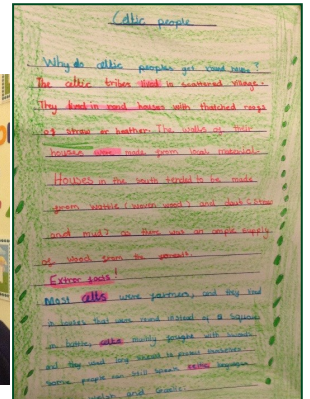 Celtic people
Why do celtic peoples get round house?
The celtic tribes lived in scattered village.
They lived in rond houses with thatched roofs
of straw or heather. The walls of their
houses were made from local material.
Houses in the south tended to be made
from wattle (woven wood) and daub (straw
and mud) as there was an ample supply
of wood from the
Extrar facts!
Most celts were farmers, and they lived
in houses that were round instead of a square
in battle, celts mainly fought with swords
and they used long shield to protect themselves
Some people can still speak celtic languages
welsh and Gaelic.